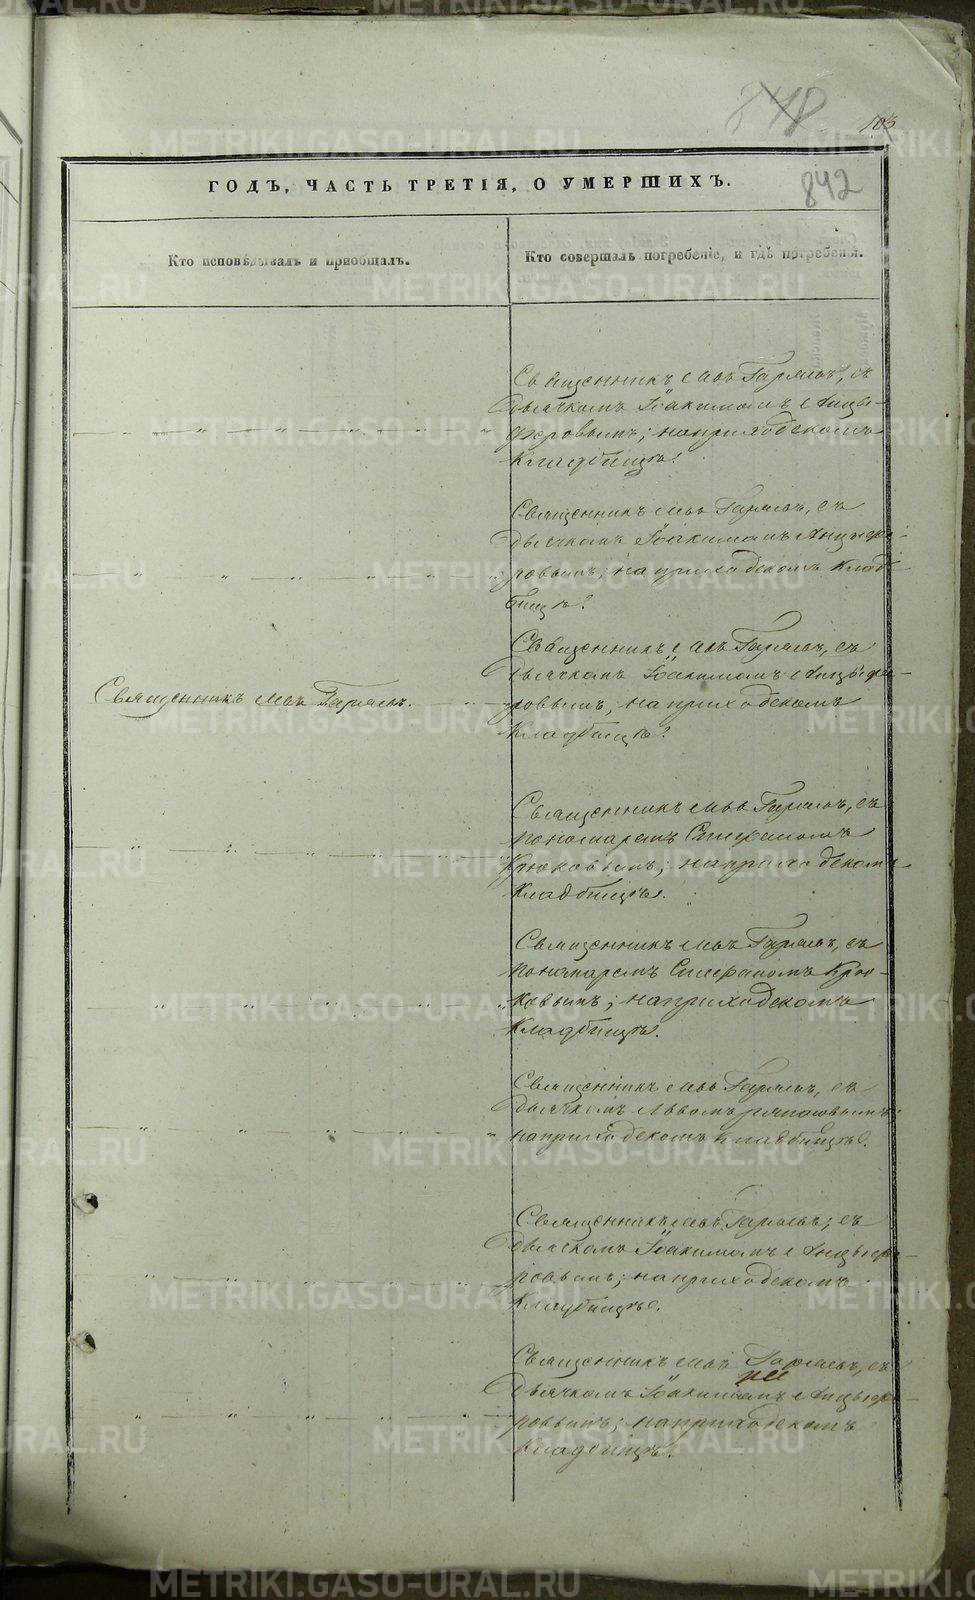 848
103
ГОДЪ, ЧАСТЬ ТРЕТІЯ, О УМЕРШИХЪ.
842
Кто исповѣдывалъ и пріобщалъ.
Кто совершалъ погребеніе, и гдѣ погребенія.
Священникъ Левъ Гаряевъ, съ
дьячкомъ Іоакимомъ Анцы-
феровымъ; на приходскомъ
кладбищѣ.
Священникъ Левъ Гаряевъ, съ
дьячкомъ Іоакимомъ Анцыфе-
ровымъ; на приходскомъ клад-
бищѣ.
Священникъ Левъ Гаряевъ.
Священникъ Левъ Гаряевъ, съ
дьячкомъ Іоакимомъ Анцыфе-
ровымъ, на приходскомъ
кладбищѣ.
Священникъ Левъ Гаряевъ, съ
пономаремъ Стефаномъ
Крюковымъ; на приходскомъ
кладбищѣ.
Священникъ Левъ Гаряевъ, съ
пономаремъ Стефаномъ Крю-
ковымъ; на приходскомъ
кладбищѣ.
Священникъ Левъ Гаряевъ, съ
дьячкомъ Львомъ
на приходскомъ кладбищѣ.
Священникъ Левъ Гаряевъ, съ
дьячкомъ Іоакимомъ Анцыфе-
ровымъ; на приходскомъ
кладбищѣ.
Священникъ Левъ Гаряевъ, съ
дьячкомъ Іоакимомъ Анцыфе-
ровымъ; на приходскомъ
кладбищѣ.
METRIKI.GASO-URAL.RU